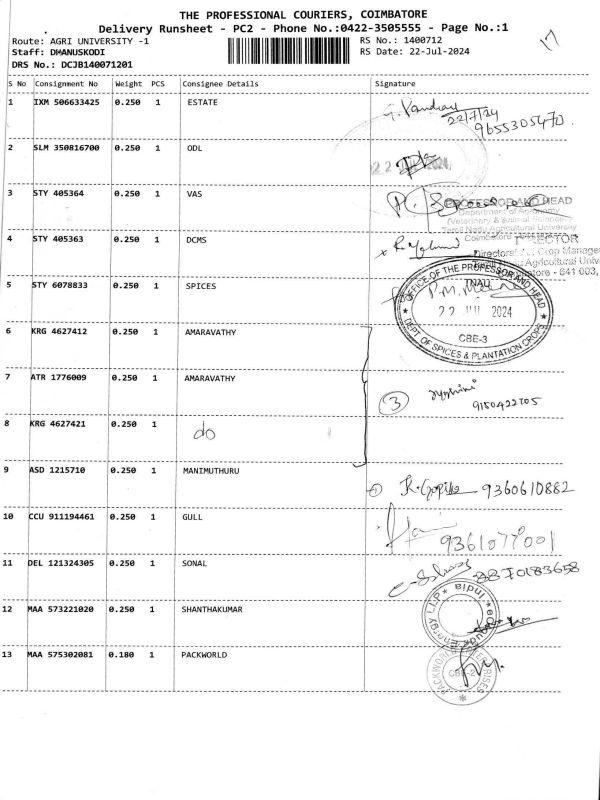 THE PROFESSIONAL COURIERS, COIMBATORE
Delivery Runsheet - PC2 - Phone No.:0422-3505555 - Page No.:1
17
Route: AGRI UNIVERSITY -1
RS No.: 1400712
Staff: DHANUSKODI
RS Date: 22-Jul-2024
DRS No.: DCJB140071201
S No Consignment No Weight PCS Consignee Details Signature
1 IXM 506633425 0.250 1 ESTATE
22/7/24
9655305470.
2 SLM 350816700 0.250 1 ODL
3 STY 405364 0.250 1 VAS
PROFESSOR AND HEAD
Department of Agronomy
Tamil Nadu Agricultural University
4 STY 405363 0.250 1 DCMS
Coimbatore
5 STY 6078833 0.250 1 SPICES
OFFICE OF THE PROFESSOR AND HEAD
TNAU
22 JUL 2024
CBE-3
DEPT OF SPICES & PLANTATION CROPS
6 KRG 4627412 0.250 1 AMARAVATHY
7 ATR 1776009 0.250 1 AMARAVATHY
3
8 KRG 4627421 0.250 1 do
9 ASD 1215710 0.250 1 MANIMUTHURU
R. Gopika 9360610882
10 CCU 911194461 0.250 1 GULL
9361079001
11 DEL 121324305 0.250 1 SONAL
8870183658
12 MAA 573221020 0.250 1 SHANTHAKUMAR
Energy LLP * India *
13 MAA 575302081 0.180 1 PACKWORLD
PACKWORLD ENTERPRISES